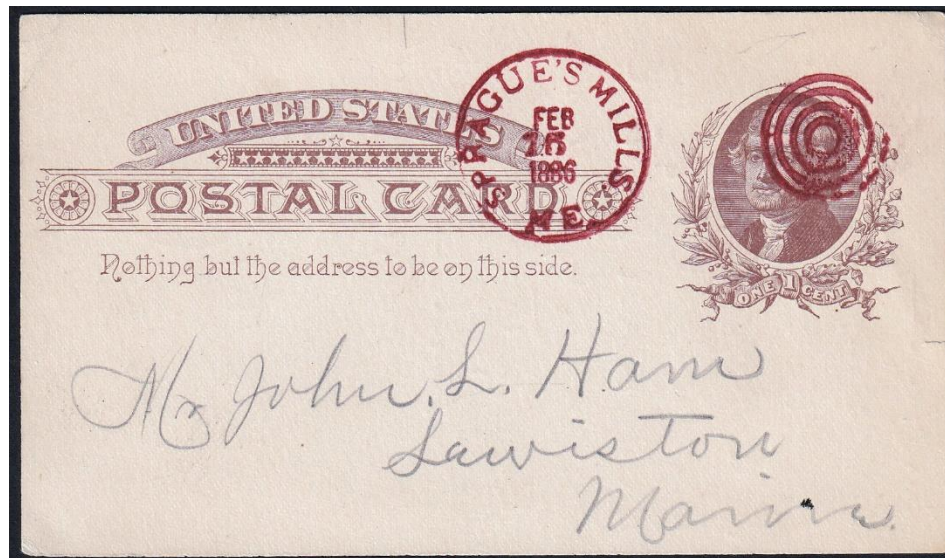 UNITED STATES
POSTAL CARD
SPRAGUE'S MILLS,
FEB
1886
ME.
ONE 1 CENT
Nothing but the address to be on this side.
Mr John. L. Ham
Lewiston
Maine.